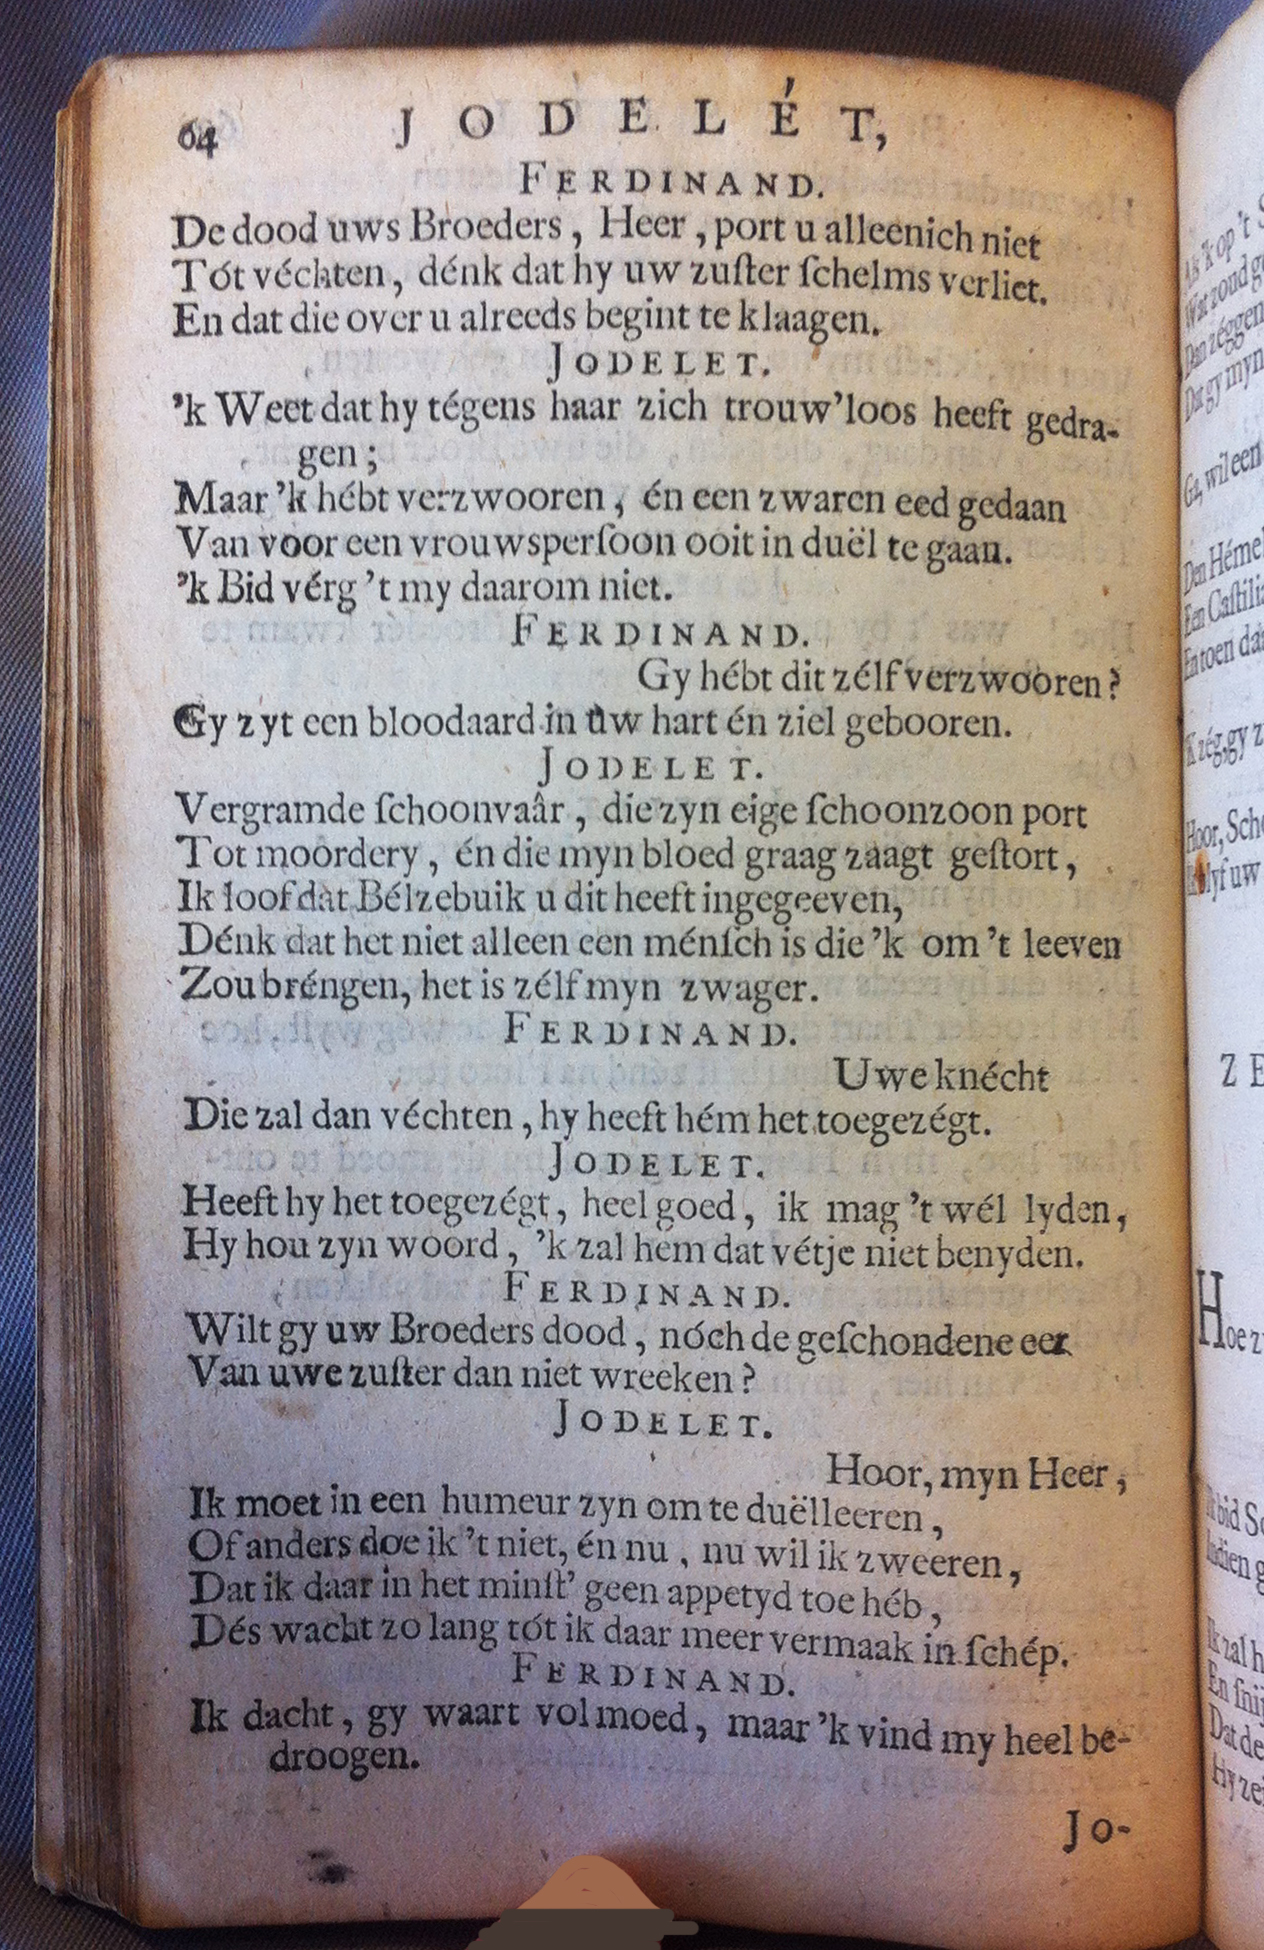 64 JODELÉT,
FERDINAND.
De dood uws Broeders, Heer, port u alleenich niet
Tót véchten, dénk dat hy uw zuſter ſchelms verliet.
En dat die over u alreeds begint te klaagen.
JODELET.
'k Weet dat hy tégens haar zich trouw'loos heeft gedra-
gen;
Maar 'k hébt verzwooren, én een zwaren eed gedaan
Van voor een vrouwsperſoon ooit in duël te gaan.
'k Bid vérg 't my daarom niet.
FERDINAND.
Gy hébt dit zélf verzwooren?
Gy zyt een bloodaard in uw hart én ziel gebooren.
JODELET.
Vergramde ſchoonvaâr, die zyn eige ſchoonzoon port
Tot moordery, én die myn bloed graag zaagt geſtort,
Ik loof dat Bélzebuik u dit heeft ingegeeven,
Dénk dat het niet alleen een ménſch is die 'k om 't leeven
Zou bréngen, het is zélf myn zwager.
FERDINAND.
Uwe knécht
Die zal dan véchten, hy heeft hém het toegezégt.
JODELET.
Heeft hy het toegezégt, heel goed, ik mag 't wél lyden,
Hy hou zyn woord, 'k zal hem dat vétje niet benyden.
FERDINAND.
Wilt gy uw Broeders dood, nóch de geſchondene eer
Van uwe zuſter dan niet wreeken?
JODELET.
Hoor, myn Heer,
Ik moet in een humeur zyn om te duëlleeren,
Of anders doe ik 't niet, én nu, nu wil ik zweeren,
Dat ik daar in het minſt' geen appetyd toe héb,
Dés wacht zo lang tót ik daar meer vermaak in ſchép.
FERDINAND.
Ik dacht, gy waart vol moed, maar 'k vind my heel be-
droogen.
Jo-